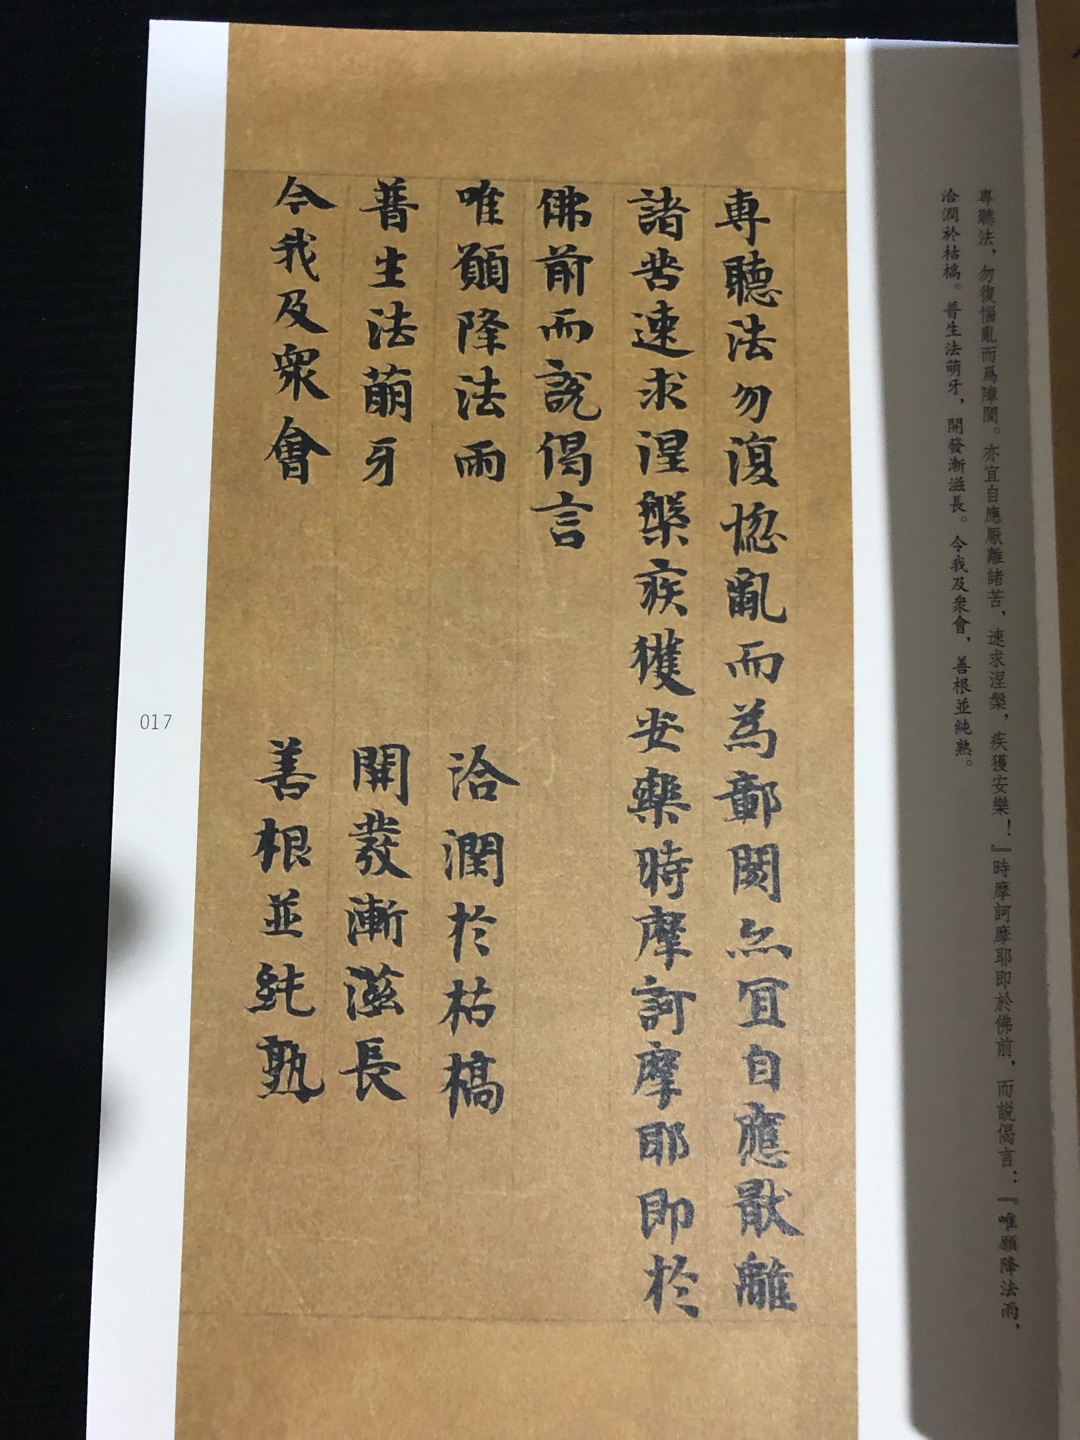 專聽法，勿復惱亂而爲障閡。亦宜自應厭離諸苦，速求涅槃，疾獲安樂！』時摩訶摩耶即於佛前，而説偈言：『唯願降法雨，
洽潤於枯槁。普生法萌牙，開發漸滋長。令我及衆會，善根並純熟。
専聽法勿復惱亂而為鄣閡亦冝自應猒離
諸苦速求涅槃疾獲安樂時摩訶摩耶即於
佛前而說偈言
唯願降法雨 洽潤於枯槁
普生法萠牙 開發漸滋長
令我及衆會 善根並純熟
017